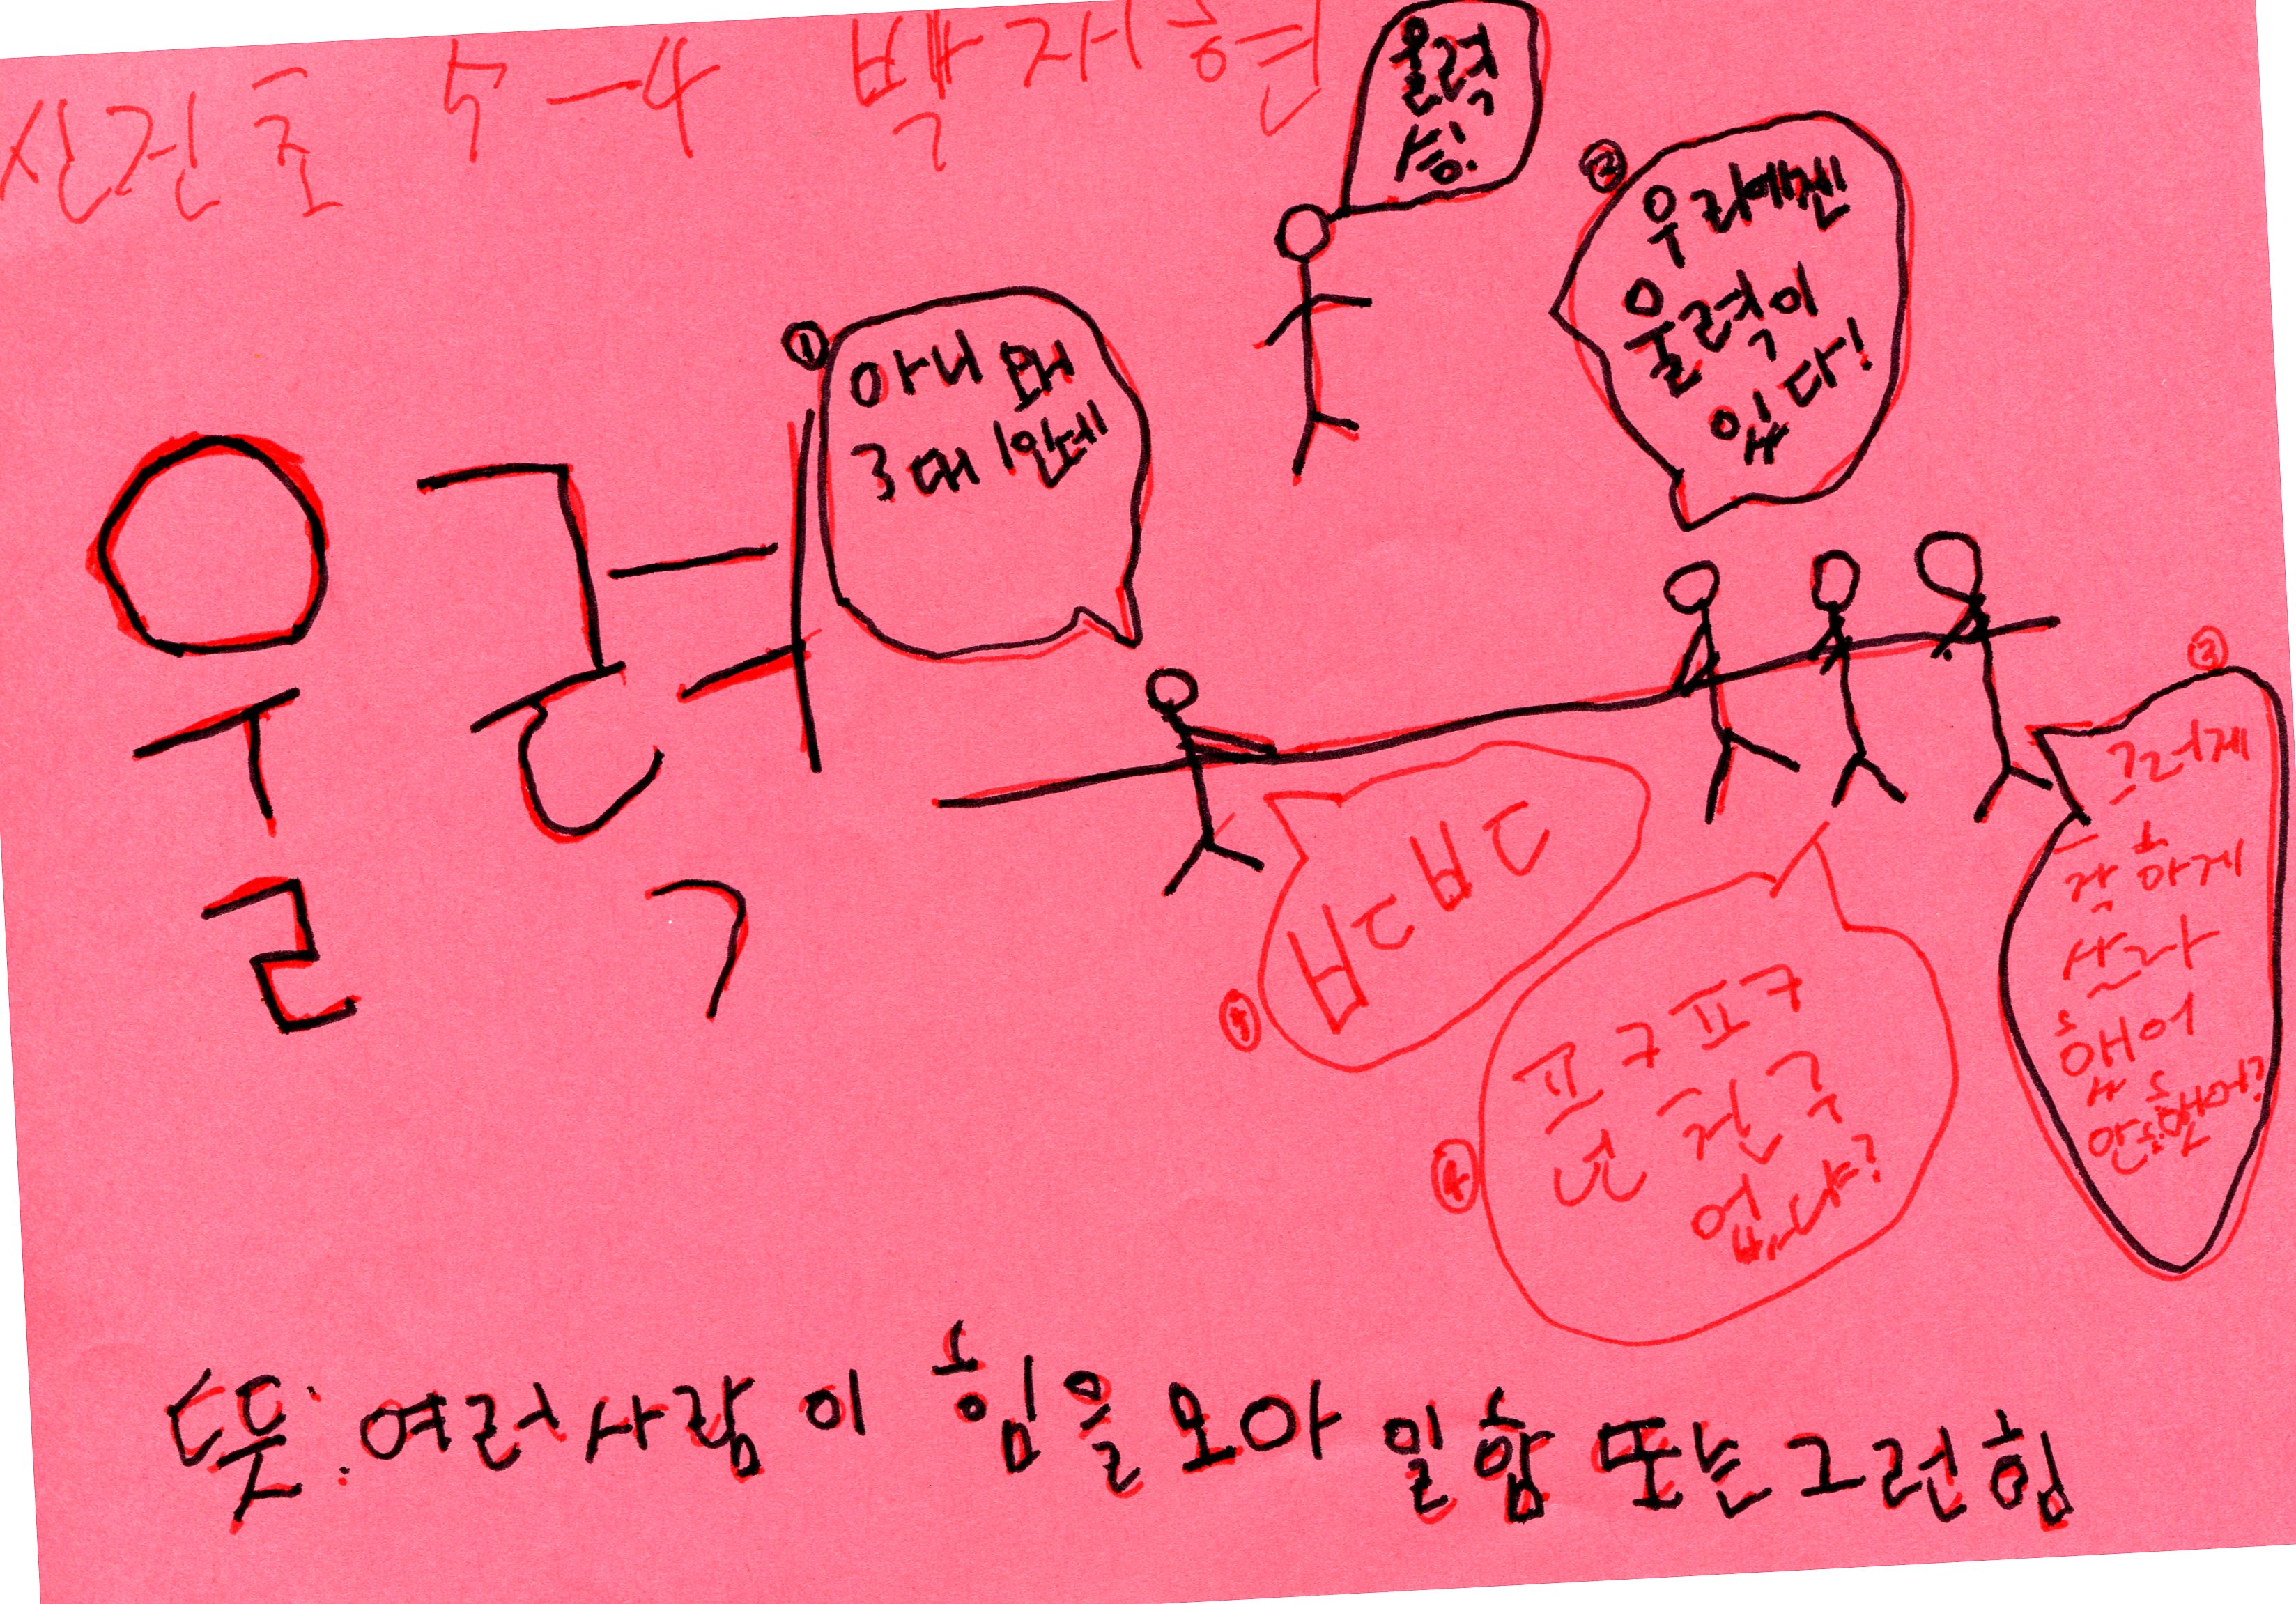 신건초 5-4 백재현
울력
승!
울력
①
아니 왜
3대1인데
②
우리에겐
울력이
있다!
③
그러게
착하게
살라
했어
안했어?
④
푸쿠푸쿠
넌 친구
없냐?
⑤
ㅂㄷㅂㄷ
뜻:여러사람이 힘을 모아 일함 또는 그런 힘